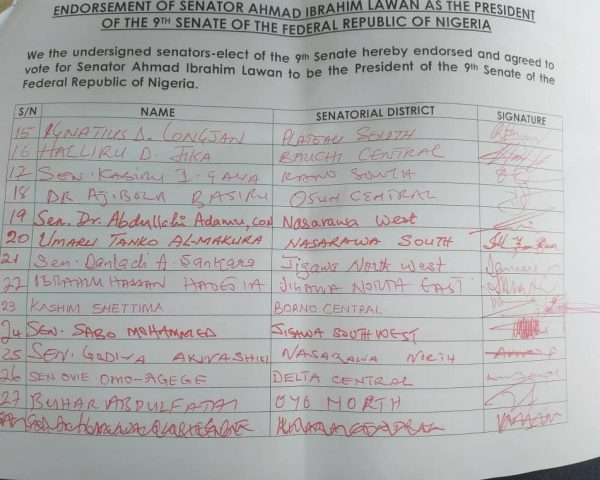 ENDORSEMENT OF SENATOR AHMAD IBRAHIM LAWAN AS THE PRESIDENT
OF THE 9TH SENATE OF THE FEDERAL REPUBLIC OF NIGERIA
We the undersigned senators-elect of the 9th Senate hereby endorsed and agreed to
vote for Senator Ahmad Ibrahim Lawan to be the President of the 9th Senate of the
Federal Republic of Nigeria.
S/N NAME SENATORIAL DISTRICT SIGNATURE
15 IGNATIUS D. LONGJAN PLATEAU SOUTH
16 HALLIRU D. JIKA BAUCHI CENTRAL
17 SEN. KABIRU I. GAYA KANO SOUTH
18 DR AJIBOLA BASIRU OSUN CENTRAL
19 Sen. Dr. Abdullahi Adamu, CON Nasarawa West
20 UMARU TANKO AL-MAKURA NASARAWA SOUTH
21 Sen. Danladi A. Sankara Jigawa North West
22 IBRAHIM HASSAN HADEJIA JIGAWA NORTH EAST
23 KASHIM SHETTIMA BORNO CENTRAL
24 SEN. SABO MOHAMMED JIGAWA SOUTH WEST
25 SEN. GODIYA AKWASHIKI NASARAWA NORTH
26 SEN OVIE OMO-AGEGE DELTA CENTRAL
27 BUHARI ABDULFATAI OYO NORTH